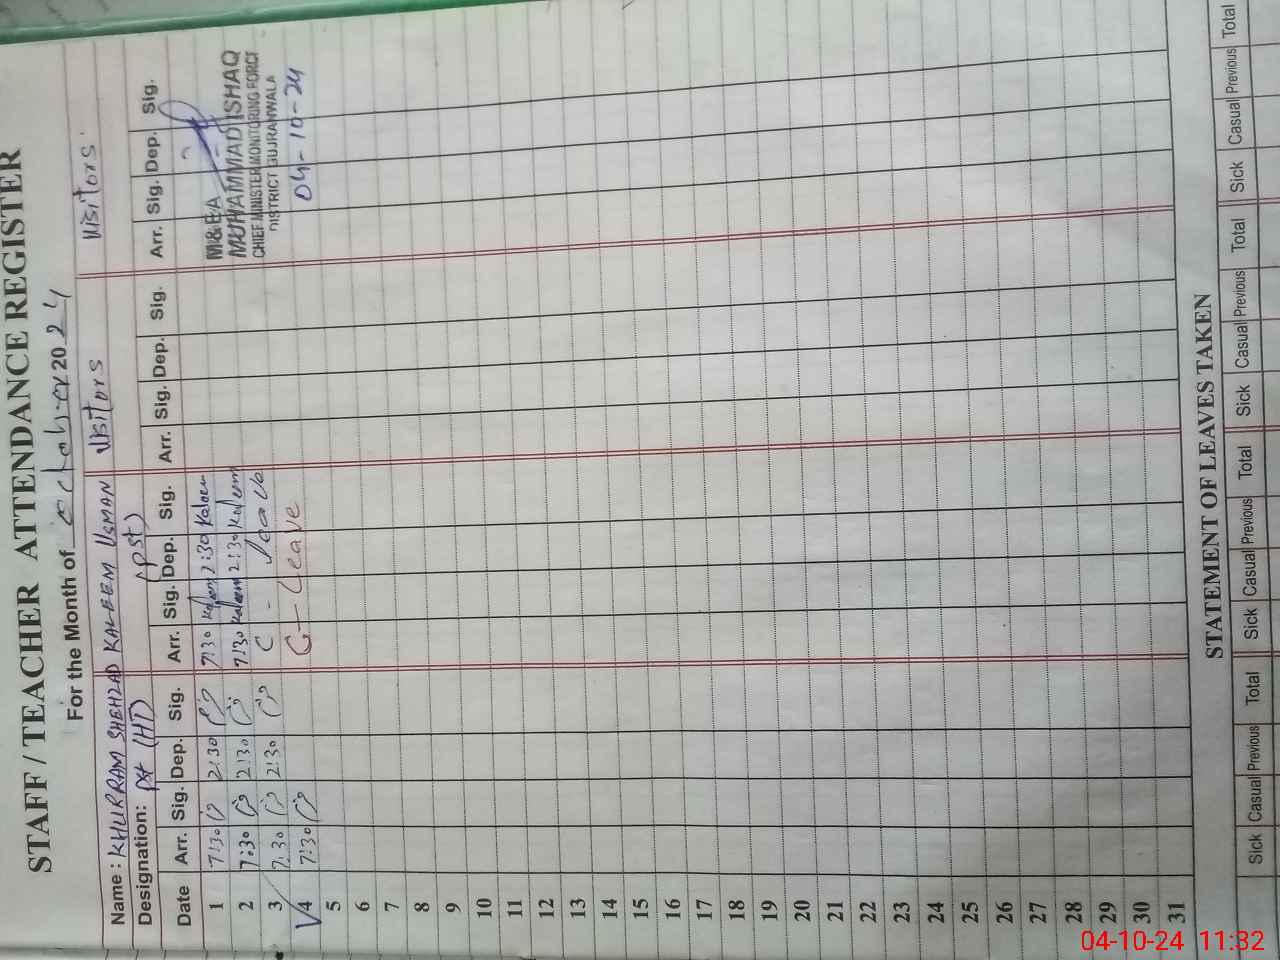 STAFF / TEACHER ATTENDANCE REGISTER
For the Month of october 2024
Name : KHURRAM SHEHZAD KALEEM USMAN Visitors Visitors
Designation: PST (HT) (PST)
Date Arr. Sig. Dep. Sig. Arr. Sig. Dep. Sig. Arr. Sig. Dep. Sig. Arr. Sig. Dep. Sig.
1 7:30 2:30 7:30 Kaleem 2:30 Kaleem
2 7:30 2:30 7:30 Kaleem 2:30 Kaleem
3 7:30 2:30 C - leave
4 7:30 C - Leave
M&EA
MUHAMMAD ISHAQ
CHIEF MINISTER MONITORING FORCE
DISTRICT GUJRANWALA
04-10-24
5
6
7
8
9
10
11
12
13
14
15
16
17
18
19
20
21
22
23
24
25
26
27
28
29
30
31
STATEMENT OF LEAVES TAKEN
Sick Casual Previous Total Sick Casual Previous Total Sick Casual Previous Total Sick Casual Previous Total
04-10-24 11:32